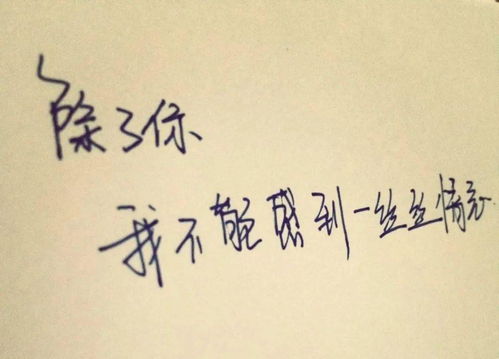 除了你
我不能感到一丝丝情意